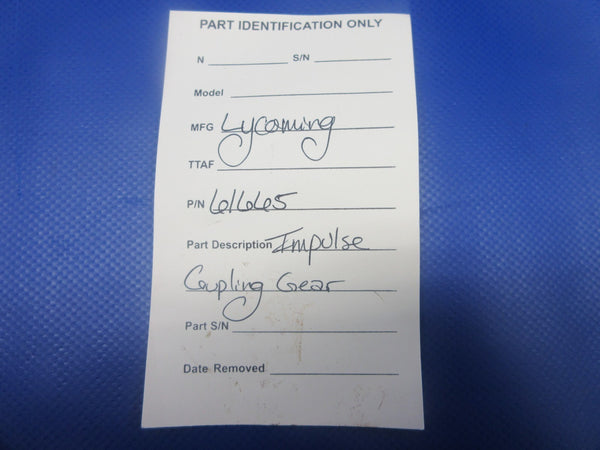 PART IDENTIFICATION ONLY
N S/N
Model
MFG Lycoming
TTAF
P/N 61665
Part Description Impulse
Coupling Gear
Part S/N
Date Removed